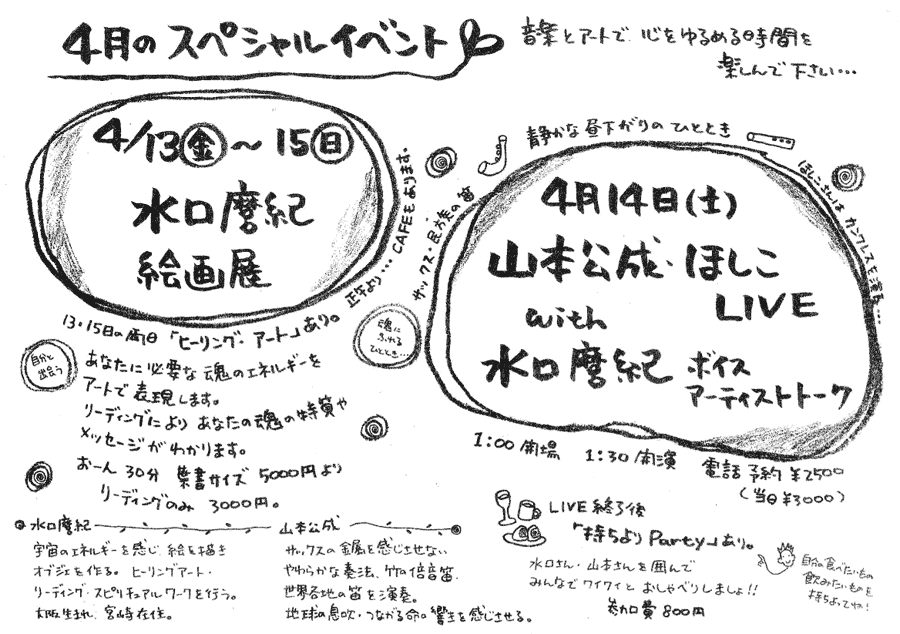 4月のスペシャルイベント
音楽とアートで心をゆるめる時間を
楽しんで下さい…
4/13(金)～15(日)
水口麿紀
絵画展
正午より… CAFEもあります。
13・15日の両日「ヒーリング・アート」あり。
自分と
出会う
あなたに必要な魂のエネルギーを
アートで表現します。
リーディングによりあなたの魂の特質や
メッセージがわかります。
おーん 30分 葉書サイズ 5000円より
リーディングのみ 3000円。
静かな昼下がりのひととき
サックス・民族の笛
ほしこさんは カンフレスを演奏…
4月14日(土)
山本公成・ほしこ
LIVE
with
水口麿紀 ボイス
アーティストトーク
魂に
ふれる
ひととき…
1:00 開場 1:30 開演
電話予約 ¥2500
(当日¥3000)
LIVE終了後
「持ちよりParty」あり。
水口さん・山本さんを囲んで
みんなでワイワイとおしゃべりしましょ!!
参加費800円
自分の食べたいもの
飲みたいものを
持ちよってね!
水口麿紀
宇宙のエネルギーを感じ、絵を描き
オブジェを作る。ヒーリングアート・
リーディング・スピリチュアルワークを行う。
大阪生まれ、宮崎在住。
山本公成
サックスの金属を感じさせない
やわらかな奏法、竹の倍音笛、
世界各地の笛を演奏。
地球の息吹・つながる命の響きを感じさせる。